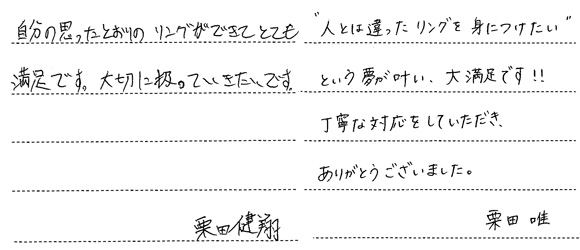 自分の思ったとおりの リングができてとても
満足です。大切に扱っていきたいです。
栗田健翔
"人とは違ったリングを身につけたい"
という夢が叶い、大満足です!!
丁寧な対応をしていただき、
ありがとうございました。
栗田 唯